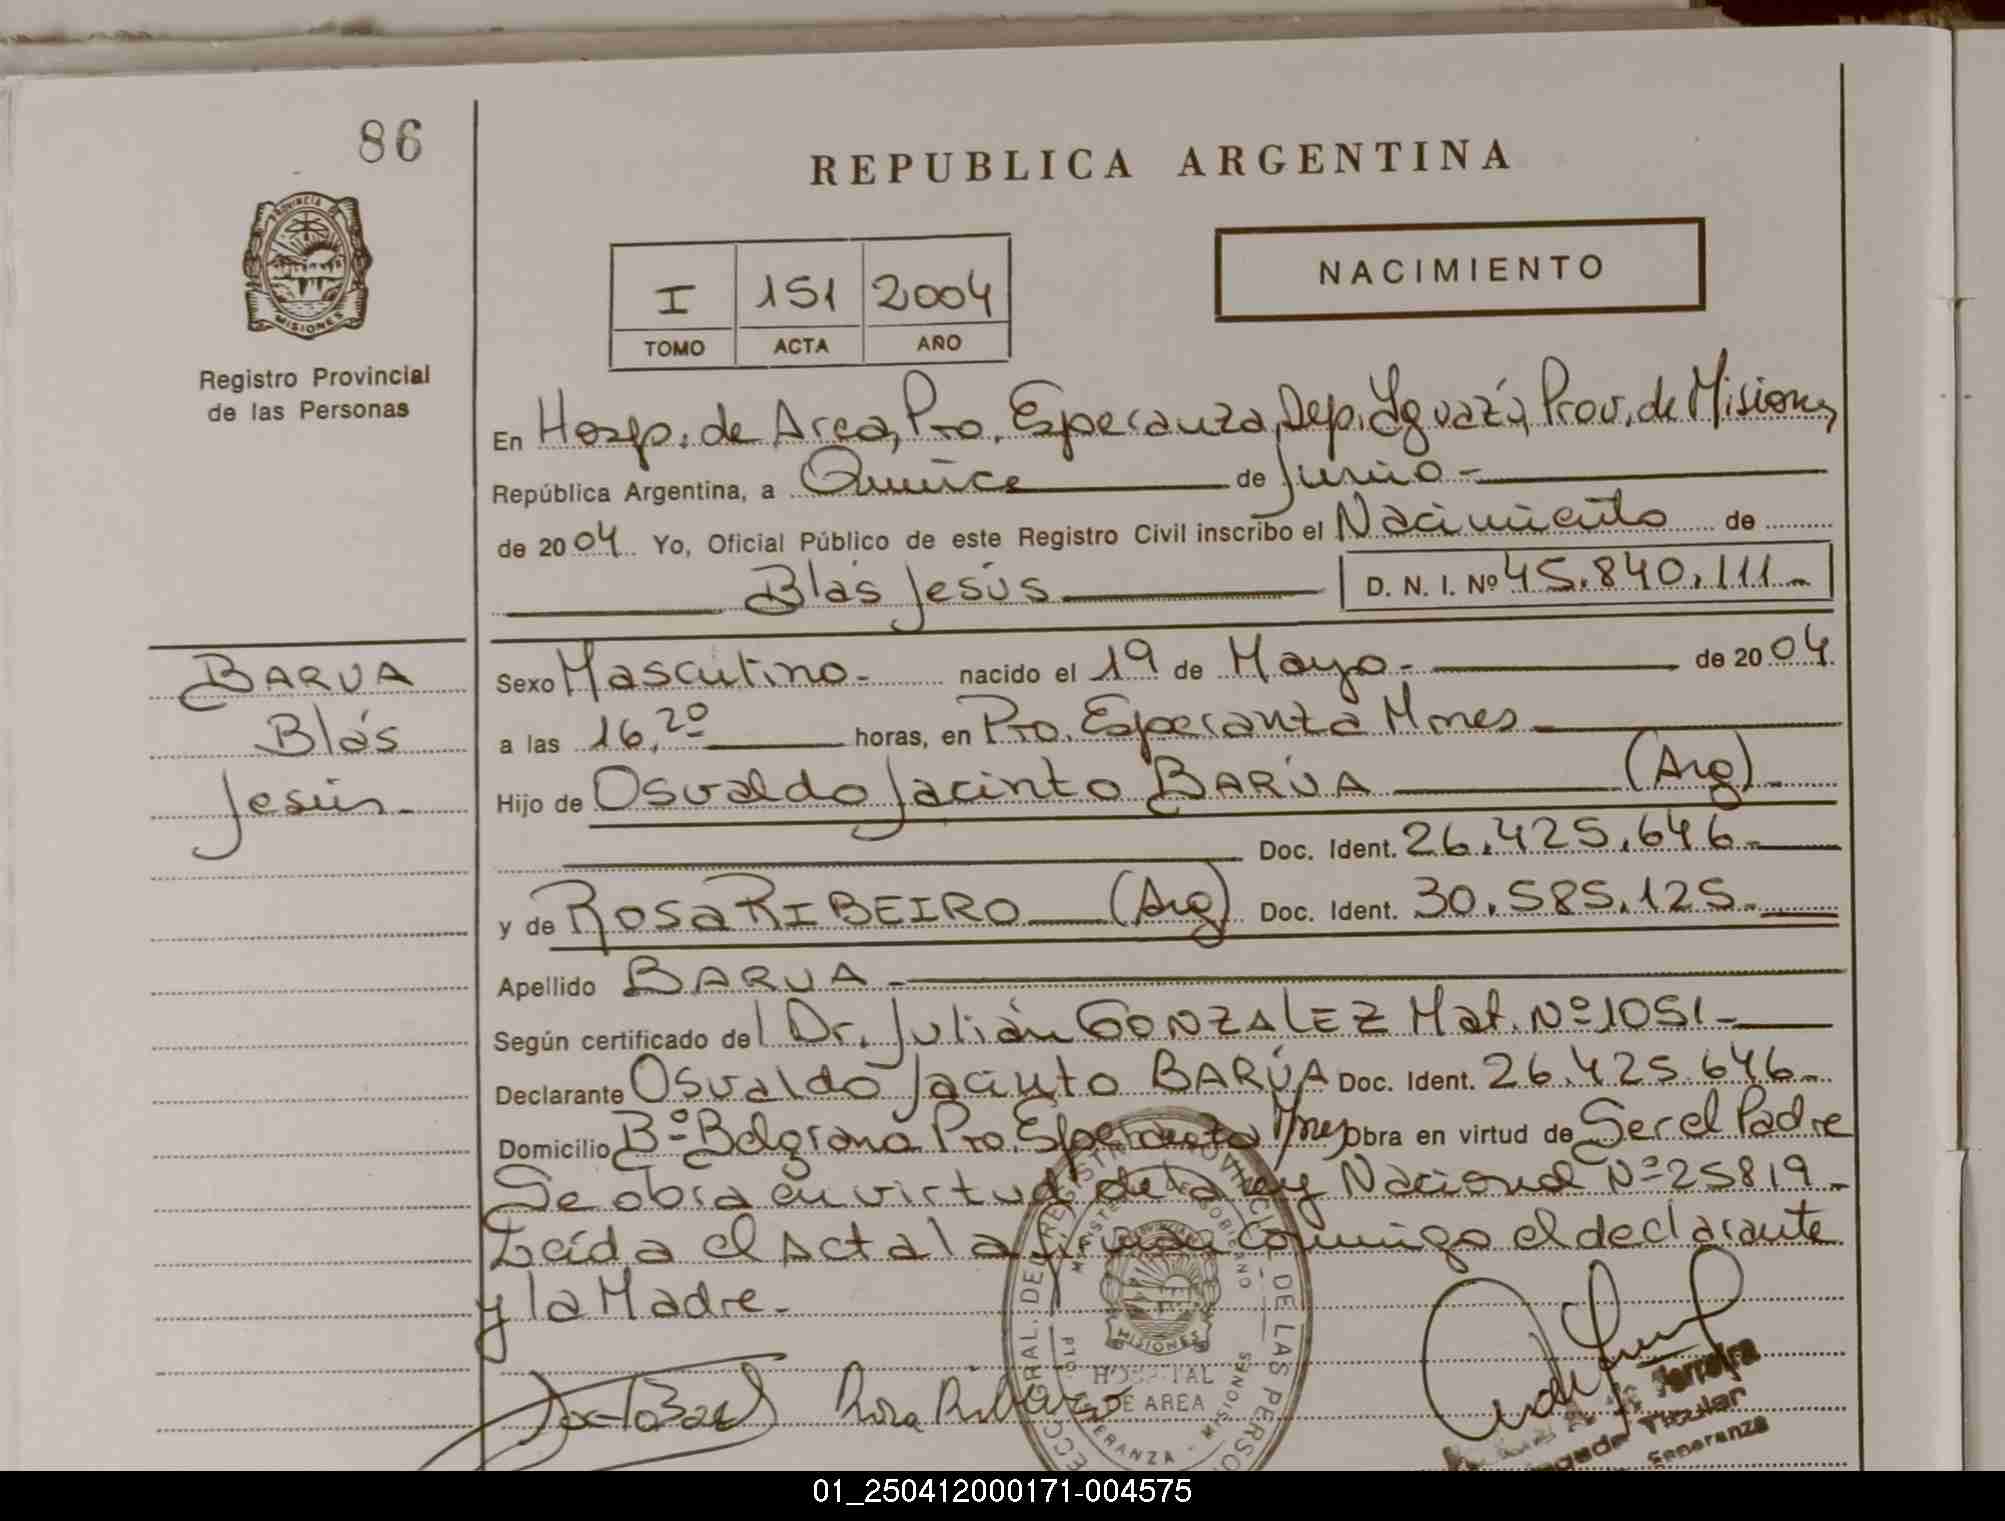 86
REPUBLICA ARGENTINA
PROVINCIA DE
MISIONES
Registro Provincial
de las Personas
I 151 2004
TOMO ACTA AÑO
NACIMIENTO
En Hosp. de Area, Pto. Esperanza, Dep. Iguazú, Prov. de Misiones,
República Argentina, a Quince de Junio.-
de 2004 Yo, Oficial Público de este Registro Civil inscribo el Nacimiento de
Blás Jesús D. N. I. Nº 45.840.111.-
BARUA
Blás
Jesús.-
Sexo Masculino.- nacido el 19 de Mayo.- de 2004.
a las 16,20 horas, en Pto. Esperanza Mnes.-
Hijo de Osvaldo Jacinto BARÚA (Arg).-
Doc. Ident. 26.425.646.-
y de Rosa RIBEIRO (Arg) Doc. Ident. 30.585.125.-
Apellido BARUA.-
Según certificado del Dr. Julián GONZALEZ Mat. Nº 1051.-
Declarante Osvaldo Jacinto BARÚA Doc. Ident. 26.425.646.-
Domicilio Bº Belgrano Pto. Esperanza Mnes Obra en virtud de Ser el Padre
Se obra en virtud de la ley Nacional Nº 25819.-
Leída el Acta la firman Conmigo el declarante
y la Madre.-
Rosa Ribeiro
GRAL. DEL REGISTRO PROVINCIAL DE LAS PERSO
HOSPITAL
DE AREA
MISIONES
ESPERANZA - MISIONES
Ferreira
Titular
Esperanza
01_250412000171-004575